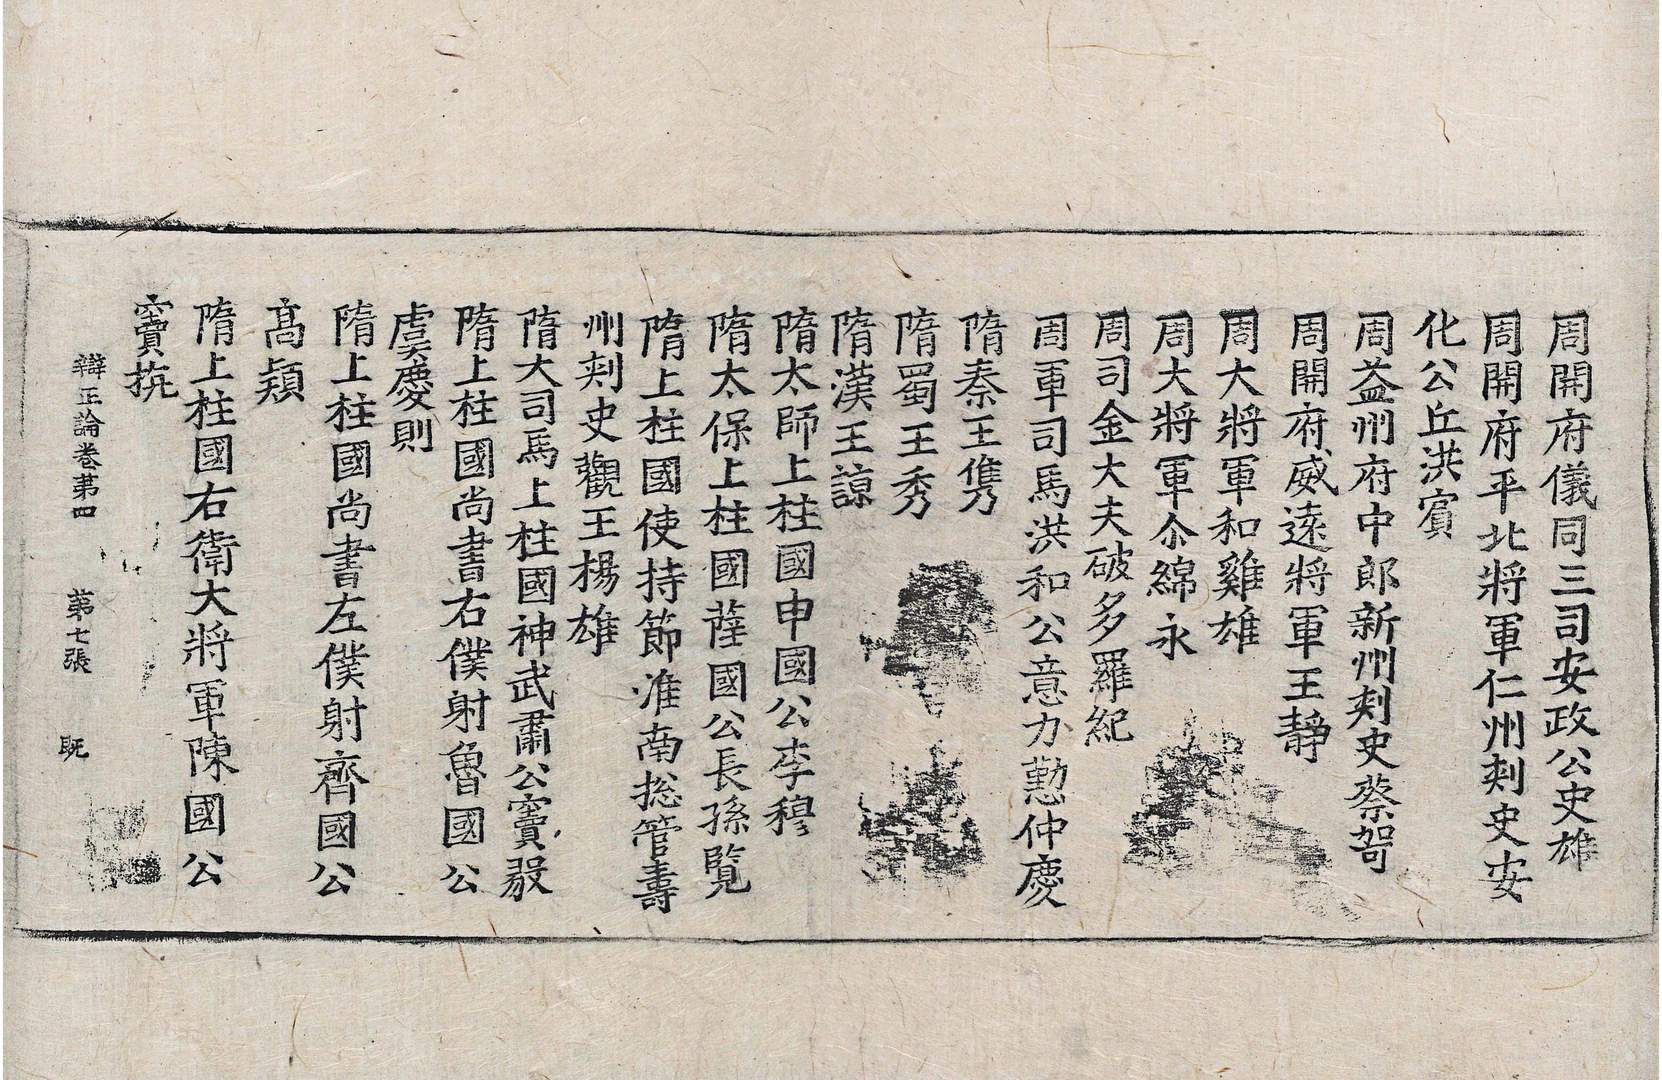 周開府儀同三司安政公史雄
周開府平北將軍仁州刺史安
化公丘洪賔
周益州府中郎新州刺史蔡哿
周開府威遠將軍王靜
周大將軍和雞雄
周大將軍尒綿永
周司金大夫破多羅紀
周軍司馬洪和公意力懃仲慶
隋秦王雋
隋蜀王秀
隋漢王諒
隋太師上柱國申國公李穆
隋太保上柱國薩國公長孫覧
隋上柱國使持節淮南捴管壽
州刺史觀王楊雄
隋大司馬上柱國神武肅公竇毅
隋上柱國尚書右僕射魯國公
虞慶則
隋上柱國尚書左僕射齊國公
髙熲
隋上柱國右衛大將軍陳國公
竇抗
辯正論卷苐四 苐七張 旣